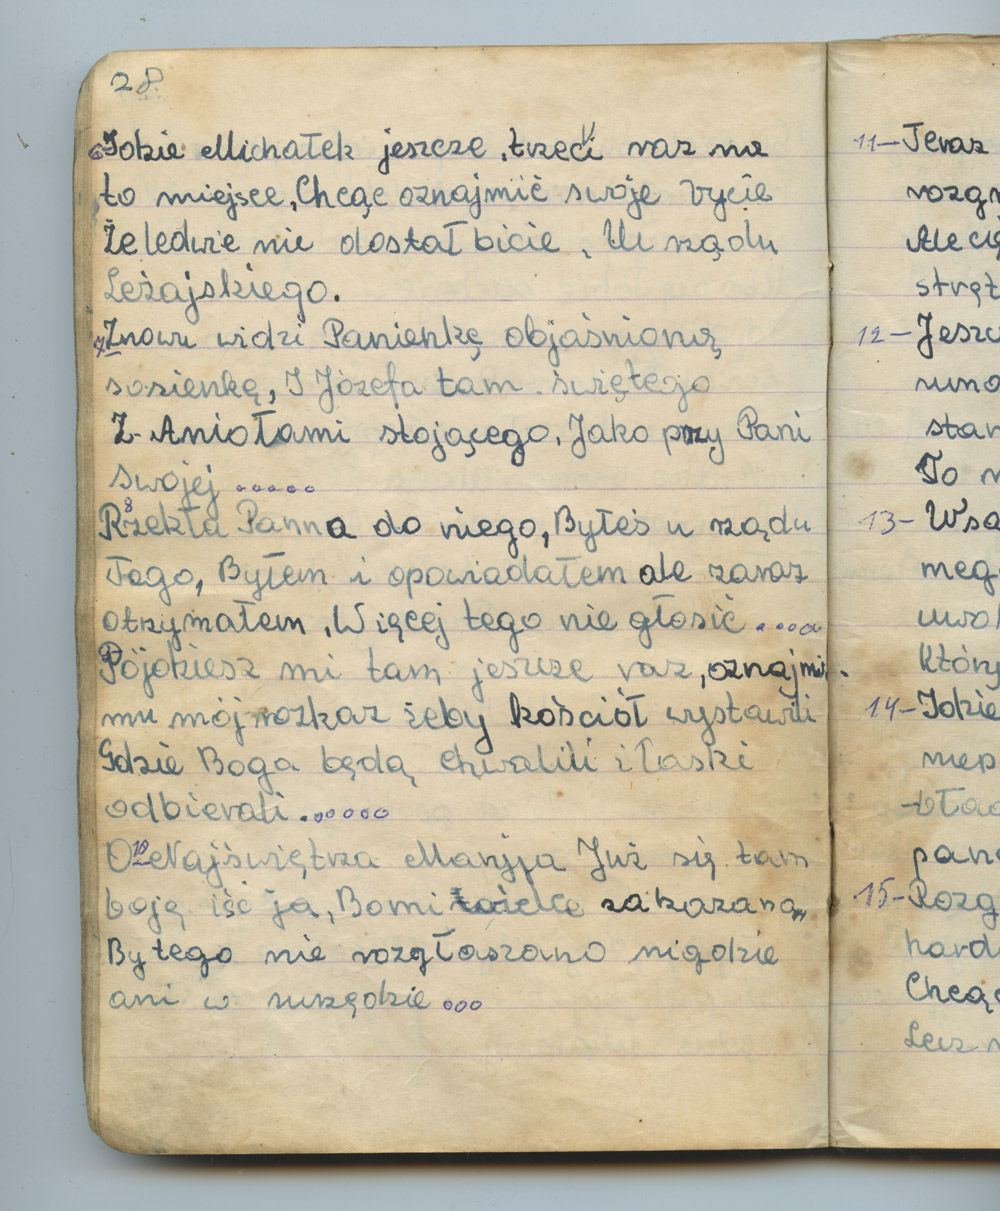 28
6 Idzie Michałek jeszcze, trzeci raz na
to miejsce, Chcąc oznajmić swoje życie
Że ledwie nie dostał bicie, U rządu
Leżajskiego.
7 Znowu widzi Panienkę objaśnioną
sosienkę, I Józefa tam świętego
Z Aniołami stojącego, Jako przy Pani
swojej .....
8 Rzekła Panna do niego, Byłeś u rządu
Tego, Byłem i opowiadałem ale zaraz
otrzymałem, Więcej tego nie głosić .....
9 Pójdziesz mi tam jeszcze raz, oznajmi.
mu mój rozkaz żeby kościół wystawili
Gdzie Boga będą chwalili i łaski
odbierali ......
10 O Najświętrza Maryja Już się tam
boję iść ja, Bo mi zakazano,
By tego nie rozgłaszano nigdzie
ani w urzędzie ...
11 - Teraz
rozgn
Ale cię
stręt
12 - Jeszc
runo
stan
To n
13 - Wsa
meg
uwol
Który
14 - Idzie
mep
bła
pan
15 - Rozg
hard
Chcąc
Lecz n